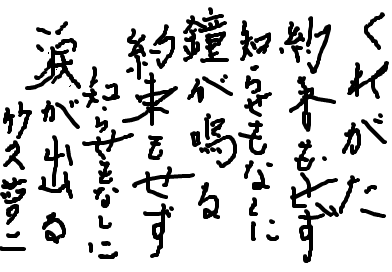 くれがた
約束もせず
知らせもなしに
鐘が鳴る
約束もせず
知らせもなしに
涙が出る
竹久夢二